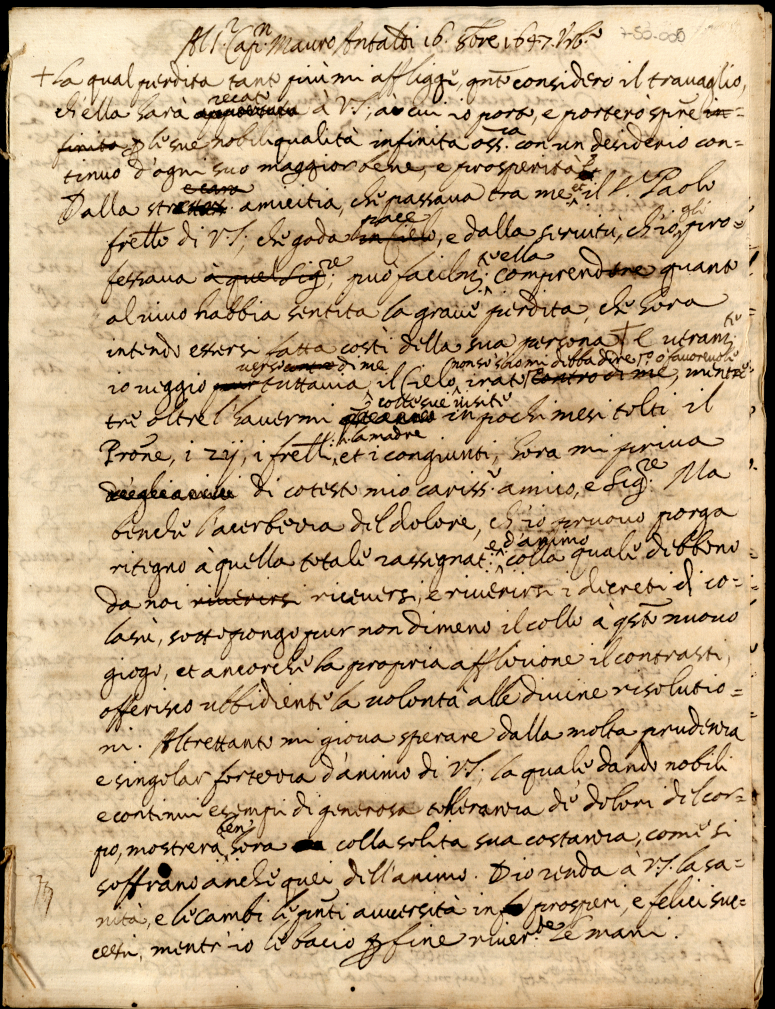 Al S.r Cap.n Mauro Antaldi 16 8bre 1647. Urb.o
+ la qual perdita tanto più mi affligge, qnto considero il travaglio,
ch'ella havrà recato à VS; à cui io porto, e porterò spre in=
finita p le sue nobili qualità infinita oss.ca con un desiderio con=
tinuo d'ogni suo maggior bene, e prosperità.
e cara
Dalla stretta amicitia, che passava tra me, et il S.r Paolo
pace
frello di VS; che goda in cielo, e dalla servitù, ch'io gli pro=
fessava à quel Sig.re, può facilm.te ella comprendere quanto
al vivo habbia sentita la grave perdita, che hora
intendo essersi fatta costì della sua persona + E veram.te
verso di me non so s'io mi debba dire, o favorevole
io veggio pur tuttavia il Cielo, irato contro di me, mentre
colle sue visite
tre oltre l'havermi in pochi mesi tolti il
la madre
Prone, i zij, i frelli, et i congiunti, hora mi priva
di cotesto mio cariss.o amico, e Sig.re Ma
benche l'acerbezza del dolore, ch'io pruovo porga
e d'animo
ritegno à quella totale rassegnat.e colla quale debbono
da noi riverirsi riceversi, e riverirsi i decreti di co=
lasù, sottopongo pur nondimeno il collo à qsto nuovo
giogo, et ancorche la propria afflizione il contrasti,
offerisco ubbidiente la volontà alle divine risolutio=
ni. Altrettanto mi giova sperare dalla molta prudenza
e singolar fortezza d'animo di VS; la quale dando nobili
e continui esempi di generosa tolleranza de' dolori del cor=
po, mostrerà ben hora colla solita sua costanza, come si
soffrano anche quei dell'animo. Dio renda à VS. la sa=
nità, e le cambi le pnti avversità in prosperi, e felici suc=
cessi, mentr'io le bacio p fine river.te le mani.